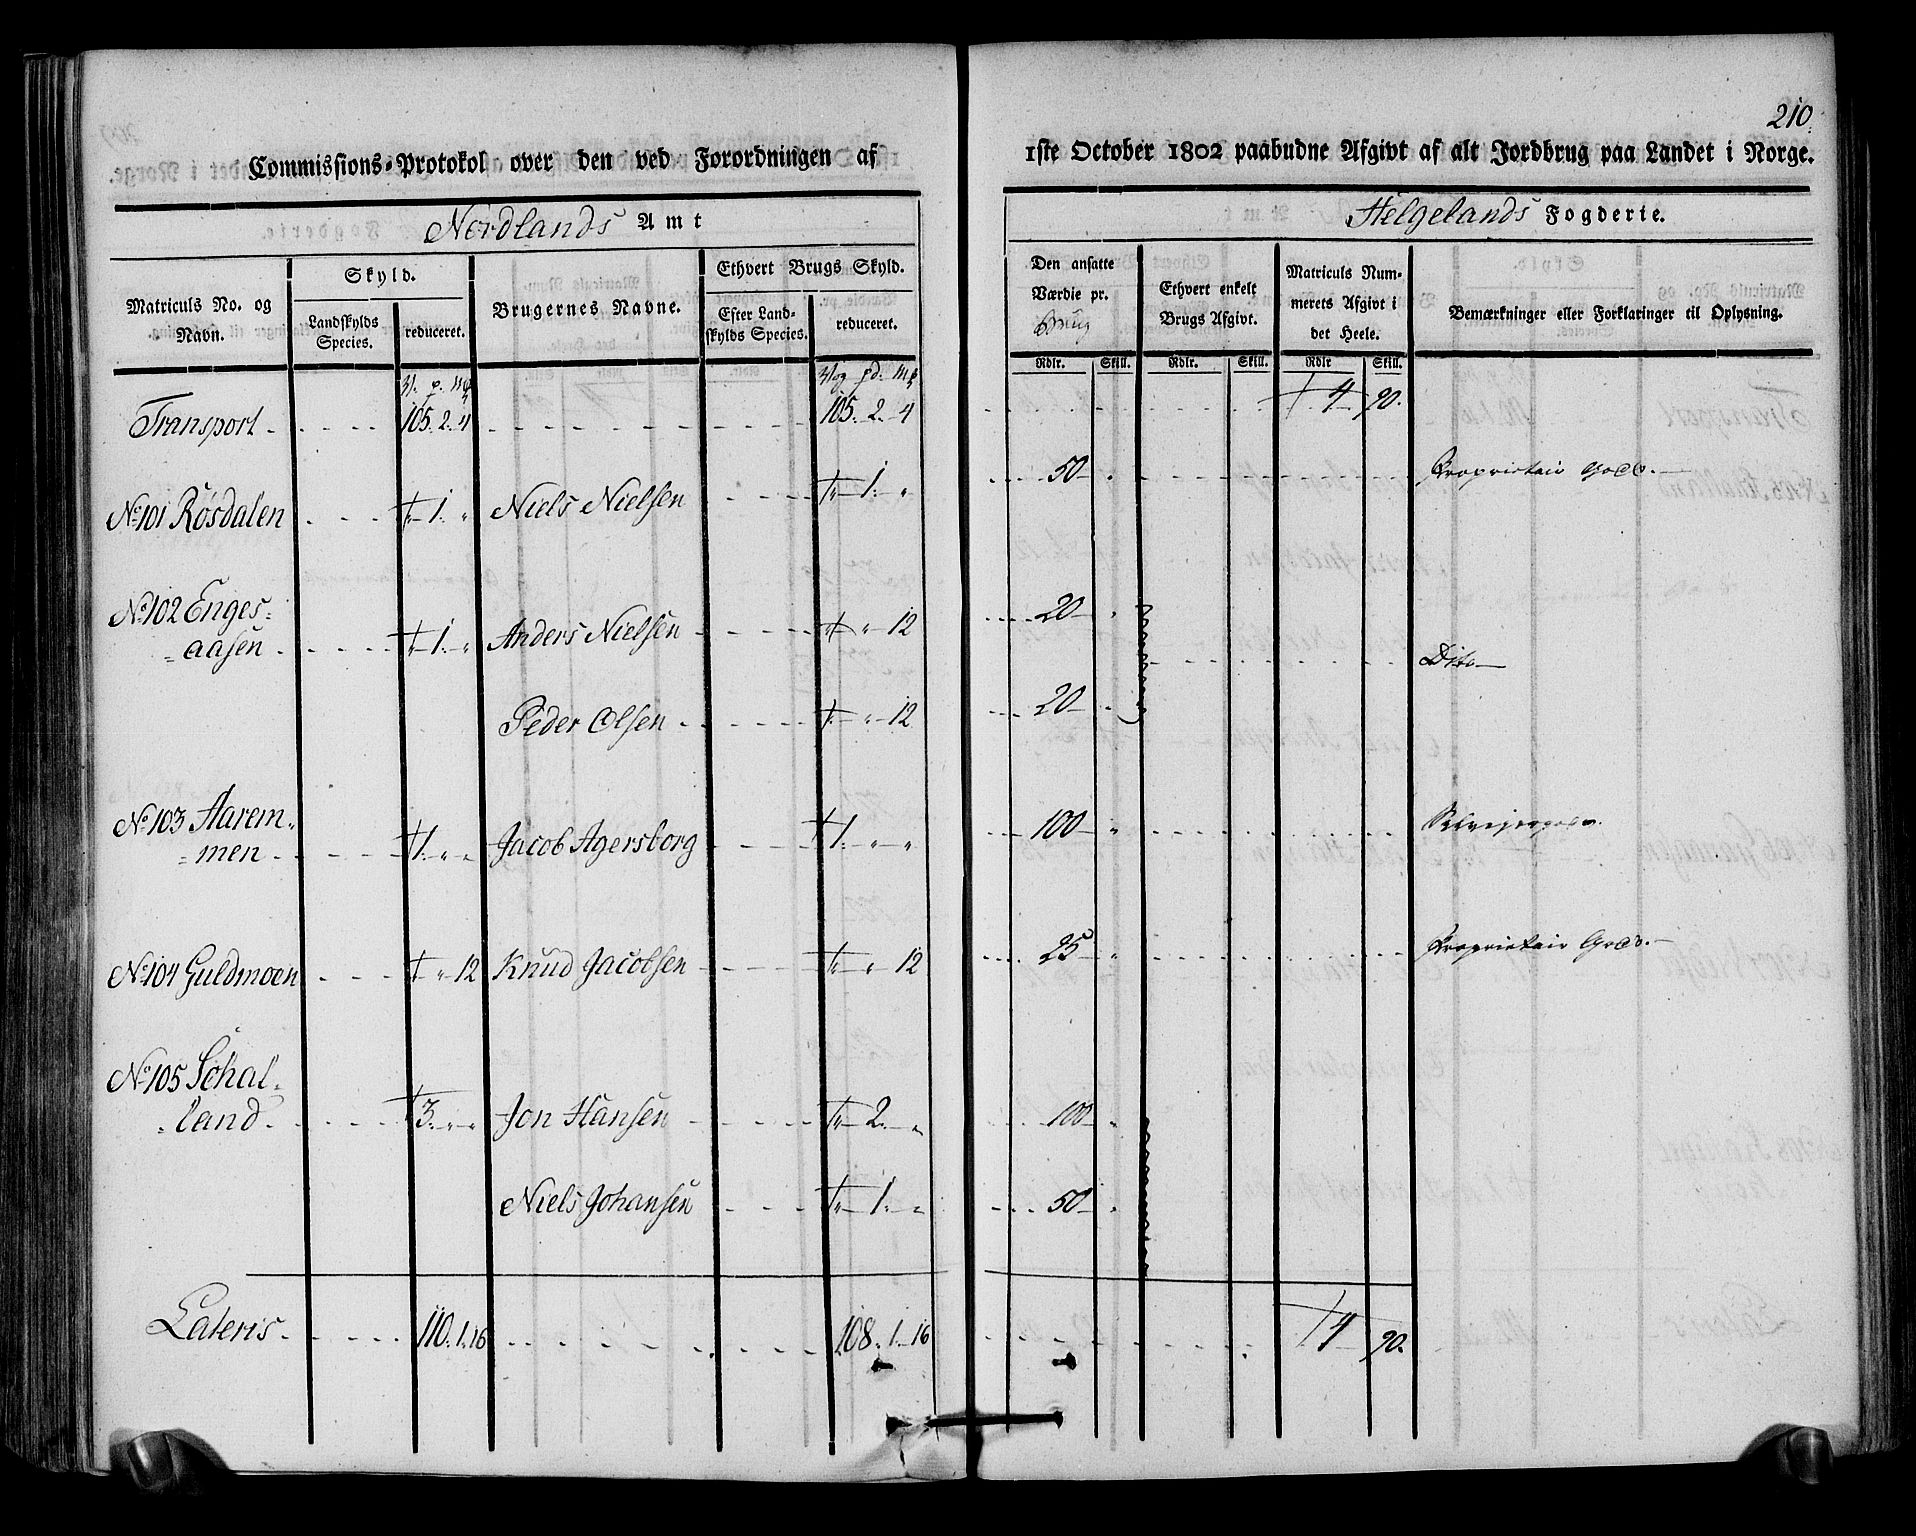 210.
Commissions-Protokol over den ved Forordningen af 1ste October 1802 paabudne Afgivt af alt Jordbrug paa Landet i Norge.
Nordlands Amt
Helgelands Fogderie.
Matriculs No. og Navn.
Skyld.
Landskylds Species.
reduceret.
Brugernes Navne.
Ethvert Brugs Skyld.
Efter Landskylds Species.
reduceret.
Den ansatte Værdie pr. Brug
Rdlr. Skill.
Ethvert enkelt Brugs Afgivt.
Rdlr. Skill.
Matriculs Nummerets Afgivt i det Heele.
Rdlr Skill.
Bemærkninger eller Forklaringer til Oplysning.
Transport 105. 2. 4 105. 2. 4 4 90.
No. 101 Røsdalen 1. „ Niels Nielsen 1. „ 50 „ Proprietair Gods.
No. 102 Enges=
=aasen 1. „ Anders Nielsen „ 12 20 „ Dito
Peder Olsen „ 12 20 „
No. 103 Aarem=
=men 1. „ „ Jacob Agersborg 1. „ „ 100 „ Selveiergods.
No. 104 Guldmoen „ 12 Knud Jacobsen „ 12 25 „ Proprietair Gods.
No. 105 Schal=
=land 3. „ „ Jon Hansen 2. „ 100 „
Niels Johansen 1. „ 50 „
Lateris 110. 1. 16 108. 1. 16 4 90.